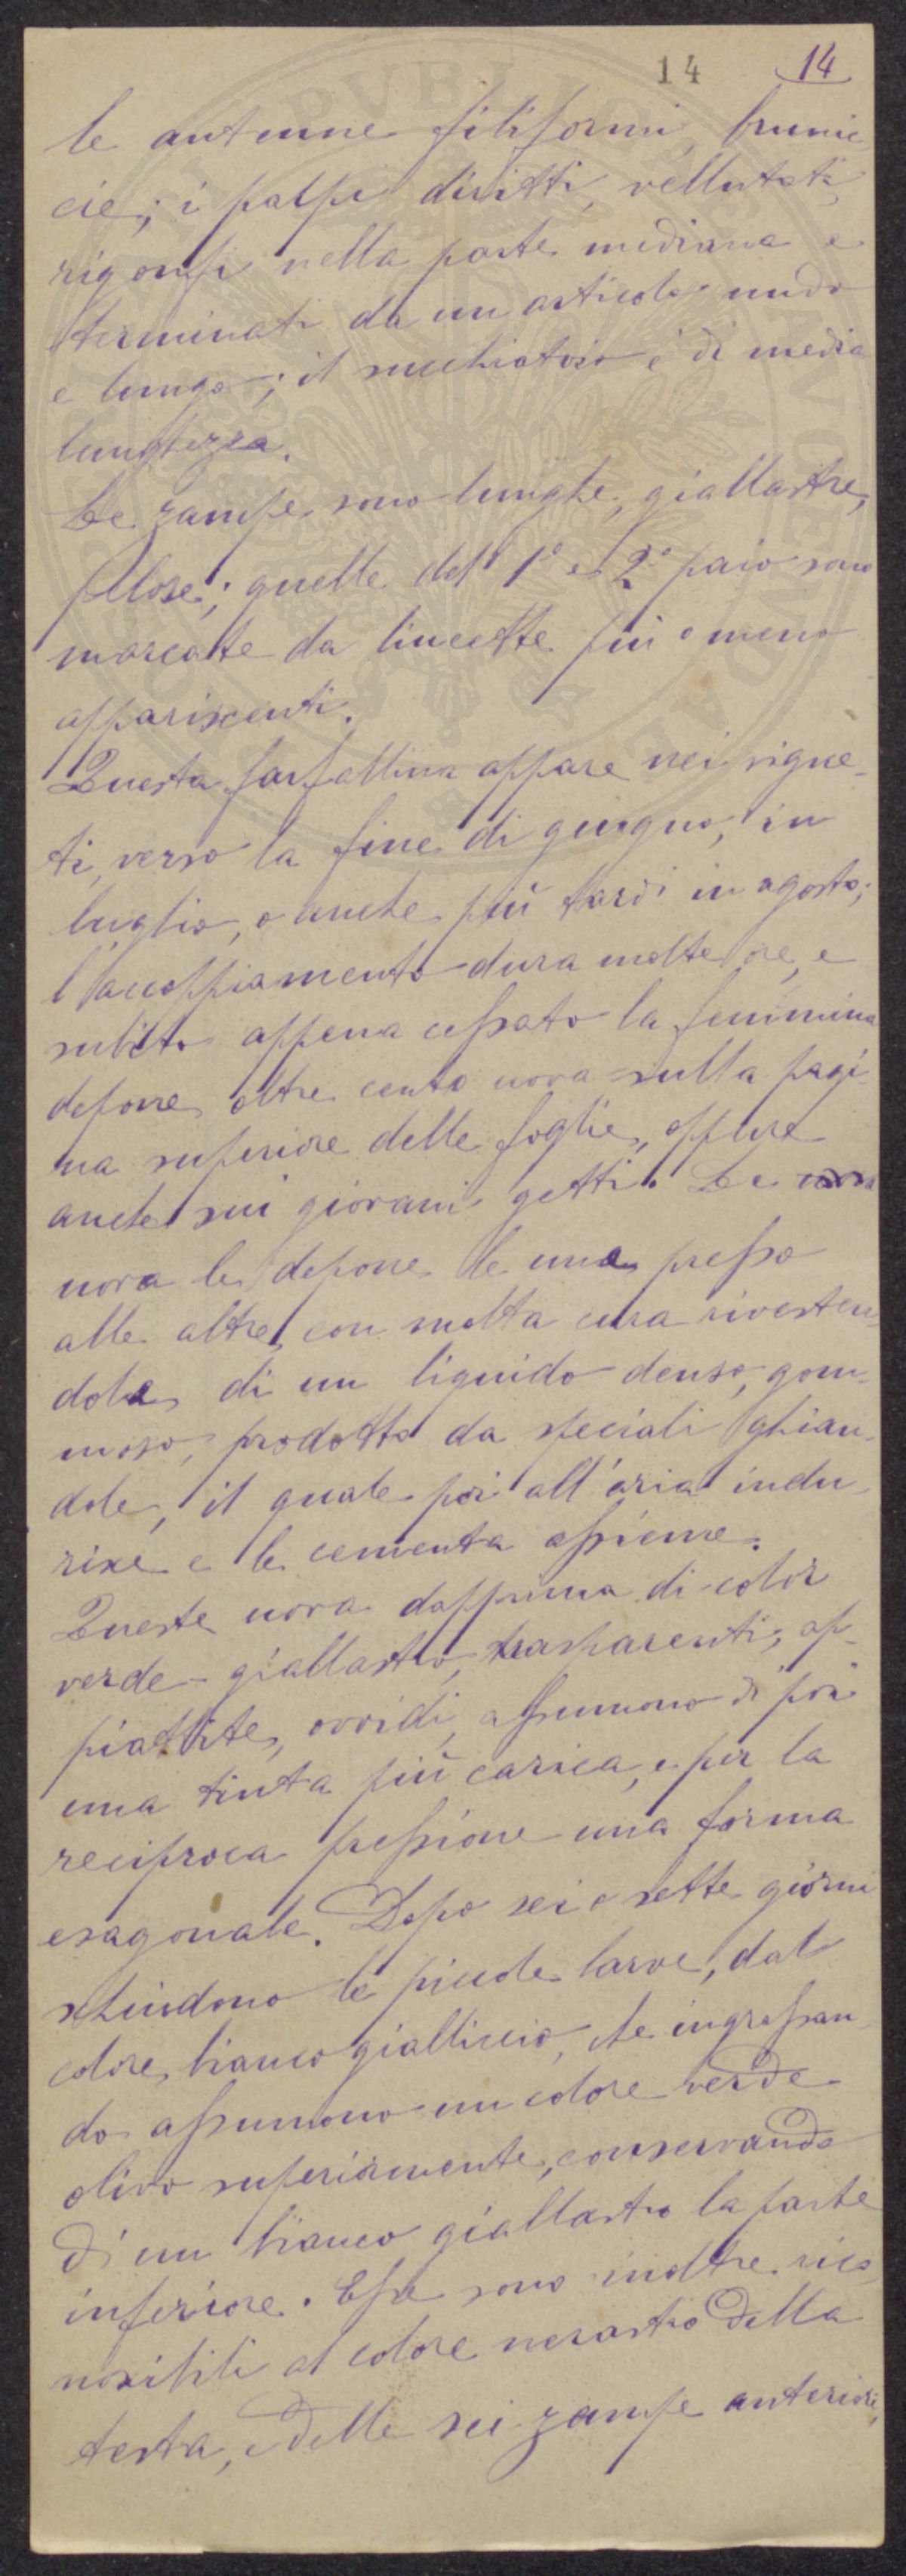 14 14
le antenne filiformi, brunic
cie; i palpi diritti, vellutati,
rigonfi nella parte mediana e
terminati da un articolo nudo
e lungo; il succhiatoio è di media
lunghezza.
Le zampe sono lunghe, giallastre,
pelose; quelle del 1° e 2° paio sono
marcate da lineette più o meno
appariscenti.
Questa farfallina appare nei vigne-
ti, verso la fine di giugno, in
luglio, o anche più tardi in agosto;
l'accoppiamento dura molte ore, e
subito appena cessato la femmina
depone oltre cento uova sulla pagi
na superiore delle foglie, oppure
anche sui giovani getti. Le uova
uova le depone le une presso
alle altre, con molta cura rivesten-
dole di un liquido denso, gom-
moso, prodotto da speciali ghian-
dole, il quale poi all'aria indu-
risce e le cementa assieme.
Queste uova dapprima di color
verde-giallastro, trasparenti, ap-
piattite, ovoidi, assumono di poi
una tinta più carica, e per la
reciproca pressione una forma
esagonale. Dopo sei o sette giorni
schiudono le piccole larve, dal
colore bianco gialliccio, che ingrossan-
do assumono un colore verde
olivo superiormente, conservando
di un bianco giallastro la parte
inferiore. Esse sono inoltre rico-
noscibili al colore nerastro della
testa, e delle sei zampe anteriori,